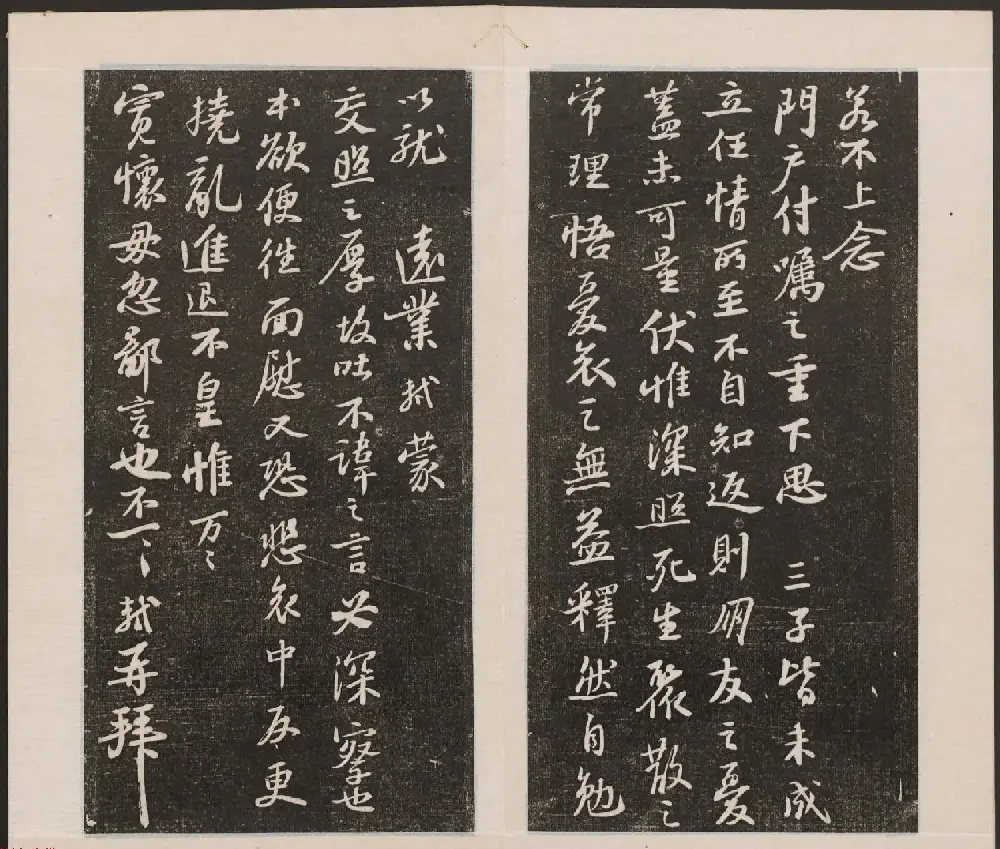 若不上念
門户付囑之重下思 三子皆未成
立任情所至不自知返則朋友之憂
蓋未可量伏惟深照死生聚散之
常理悟憂哀之無益釋然自勉
以就 遠業軾蒙
交照之厚故吐不諱之言必深察也
本欲便往面慰又恐悲哀中反更
撓亂進退不皇惟万〻
寬懷毋忽鄙言也不一〻軾再拜